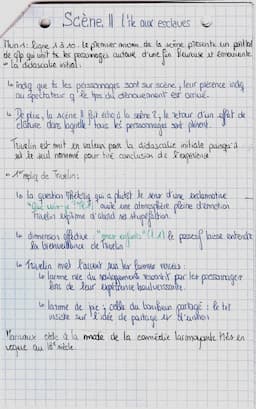 Scène 11 l'île aux esclaves
ligne 1 à 10. Le premier moment de la scène présente un
qui unit ts les personnages autour d'une fin heureuse et émouvante
- la didascalie initial :
↳ Indiq que ts les personnages sont sur scène, leur présence indiq
au spectateur q le tps du dénouement est arrivé.
↳ De plus, la scène 11 fait écho à la scène 1, le retour d'un effet de
clôture dans laquelle tous les personnages sont présent.
Trivelin est mit en valeur par la didascalie initiale puisqu'il
est le seul nommé pour tiré conclusion de l'expérience
- de Trivelin :
↳ la question qui a plutôt le sens d'une exclamative
" " (l.1) une atmosphère pleine d'émotion
Trivelin exprime d'abord sa stupéfaction.
↳ dimension affective : "mes enfants" (l.1) le possessif laisse entendre
la bienveillance de Trivelin
↳ Trivelin met l'accent sur les larmes versées :
↳ larme née du soulagement ressentit par les personnages
lors de leur expérience bouleversante.
↳ larme de joie ; celle du bonheur partagé : le tit
insiste sur l'idée de partage et d'union
Marivaux cède à la mode de la comédie larmoyante très en
vogue au 18e siècle.